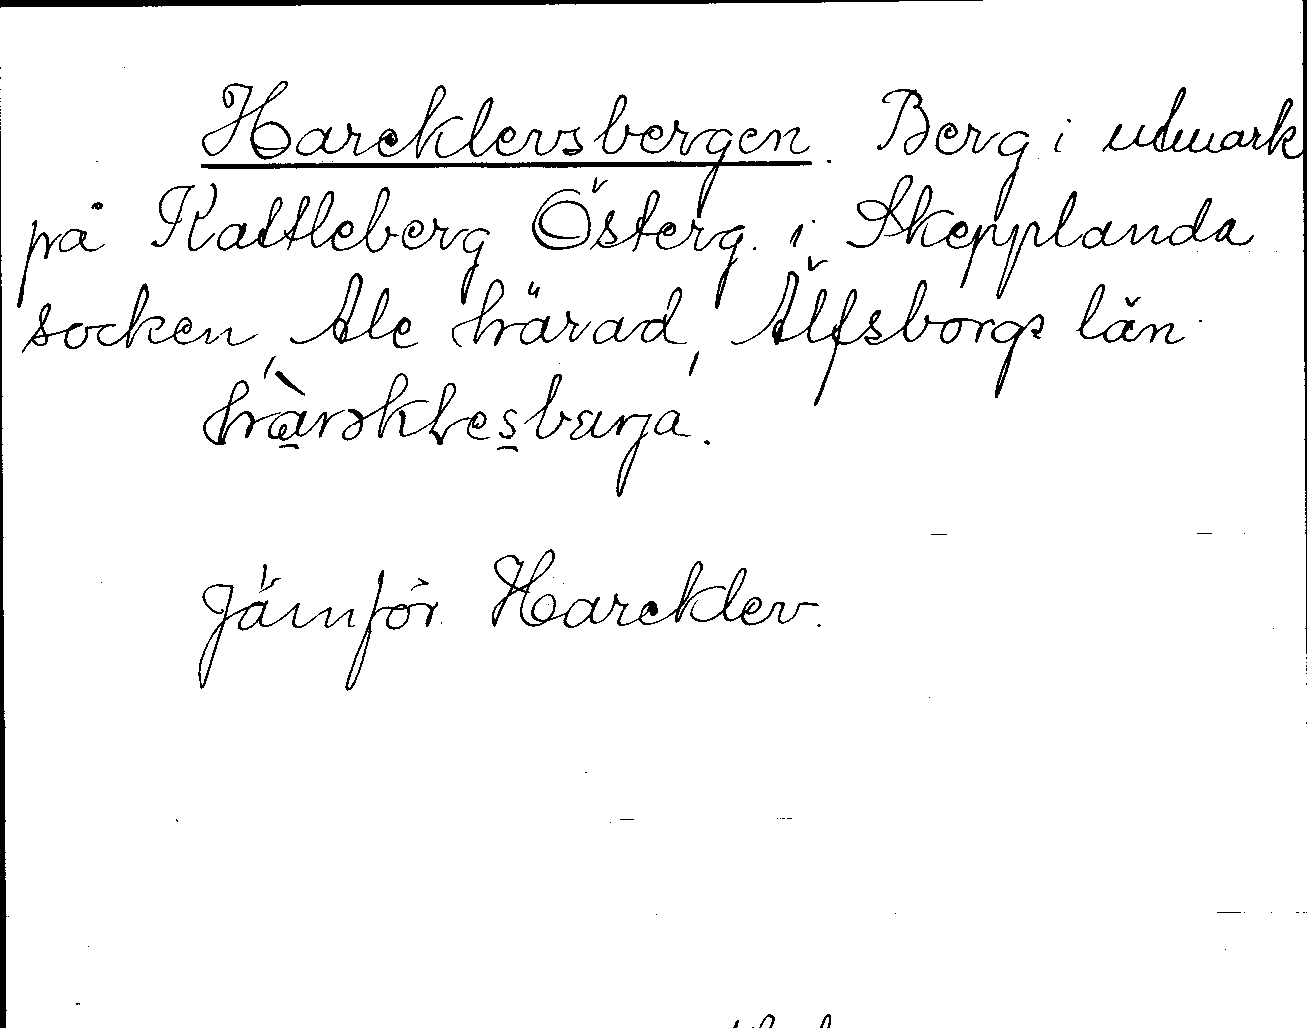 Hareklevsbergen. Berg i utmark
på Kattleberg Österg. i Skepplanda
socken, Ale härad, Älfsborgs län.
Jämför Hareklev.